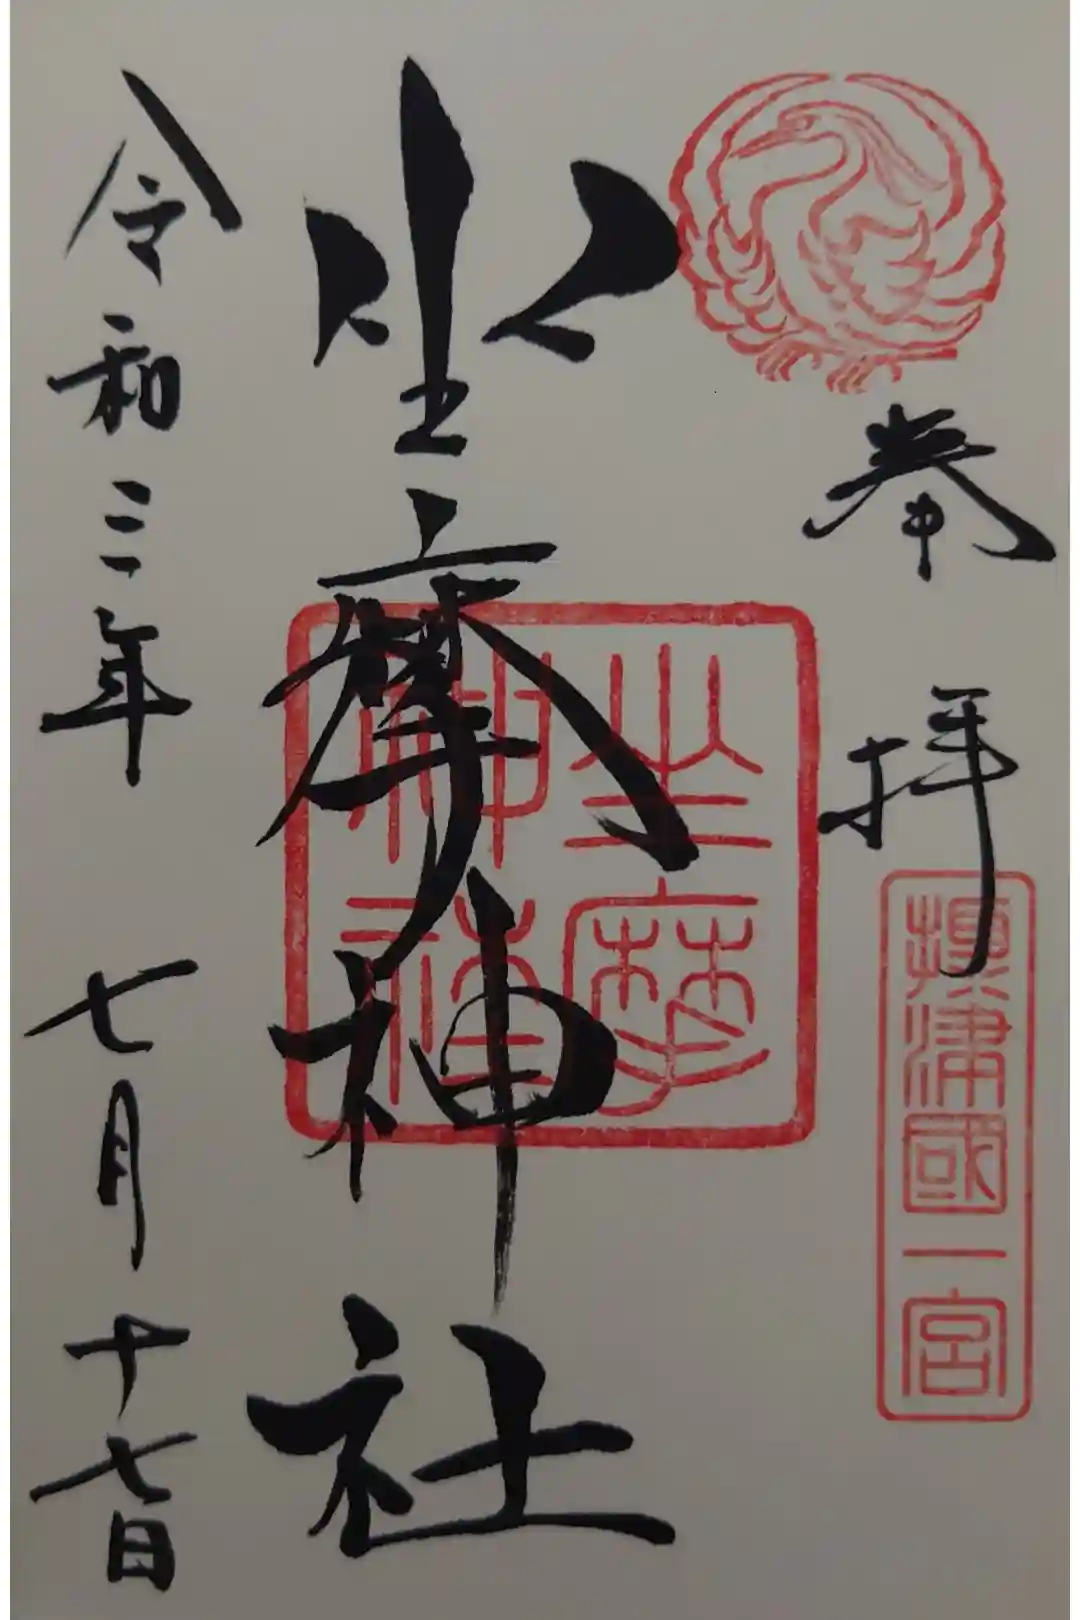 奉拝
摂津國一宮
坐摩神社
坐摩
神社
令和三年 七月十七日